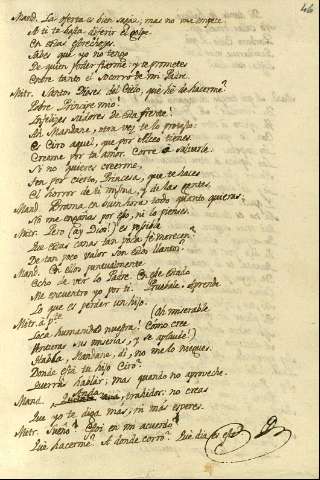 46
Mand. La oferta es bien sagaz; mas no me empece.
A ti te dexa diferir el golpe
En esas asechanzas.
Sabes que yo no tengo
De quien poder fiarme: y te prometes
Entre tanto el socorro de mi Padre.
Mitr. Santos Dioses del Cielo, qué he de hacerme?
Pobre Principe mio!
Infelizes sudores de esta frente!
Ah Mandane, otra vez te lo protesto:
Es Ciro aquel, que por Alceo tienes.
Creame por tu amor. Corre á salvarle.
Si no quieres creerme,
Ten por cierto, Princesa, que te haces
El horror de ti misma, y de las gentes.
Mand. Brama en buen hora todo quanto quieras:
No me engañas por eso, ni lo pienses.
Mitr. Pero (ay Dios!) es posible
Que estas canas tan poca fe merecen?
De tan poco valor son estos llantos?
Mand. En ellos puntualmente
Echo de ver lo Padre. En ese estado
Me encuentro yo por ti. Pruebale, aprende
Lo que es perder un hijo.
Mitr. á pte. (Oh miserable
Loca humanidad nuestra! Cómo cree
Venturas sus miserias, y se aplaude!)
Habla, Mandane, dí, no me lo niegues.
Donde está tu hijo Ciro?
Querrás hablar; mas quando no aproveche.
Mand. trahidor: no creas
Que yo te diga más, ni más esperes.
Mitr. Sueño? Estoi en mi acuerdo?
Qué hacerme? A donde corro? Qué dia es este